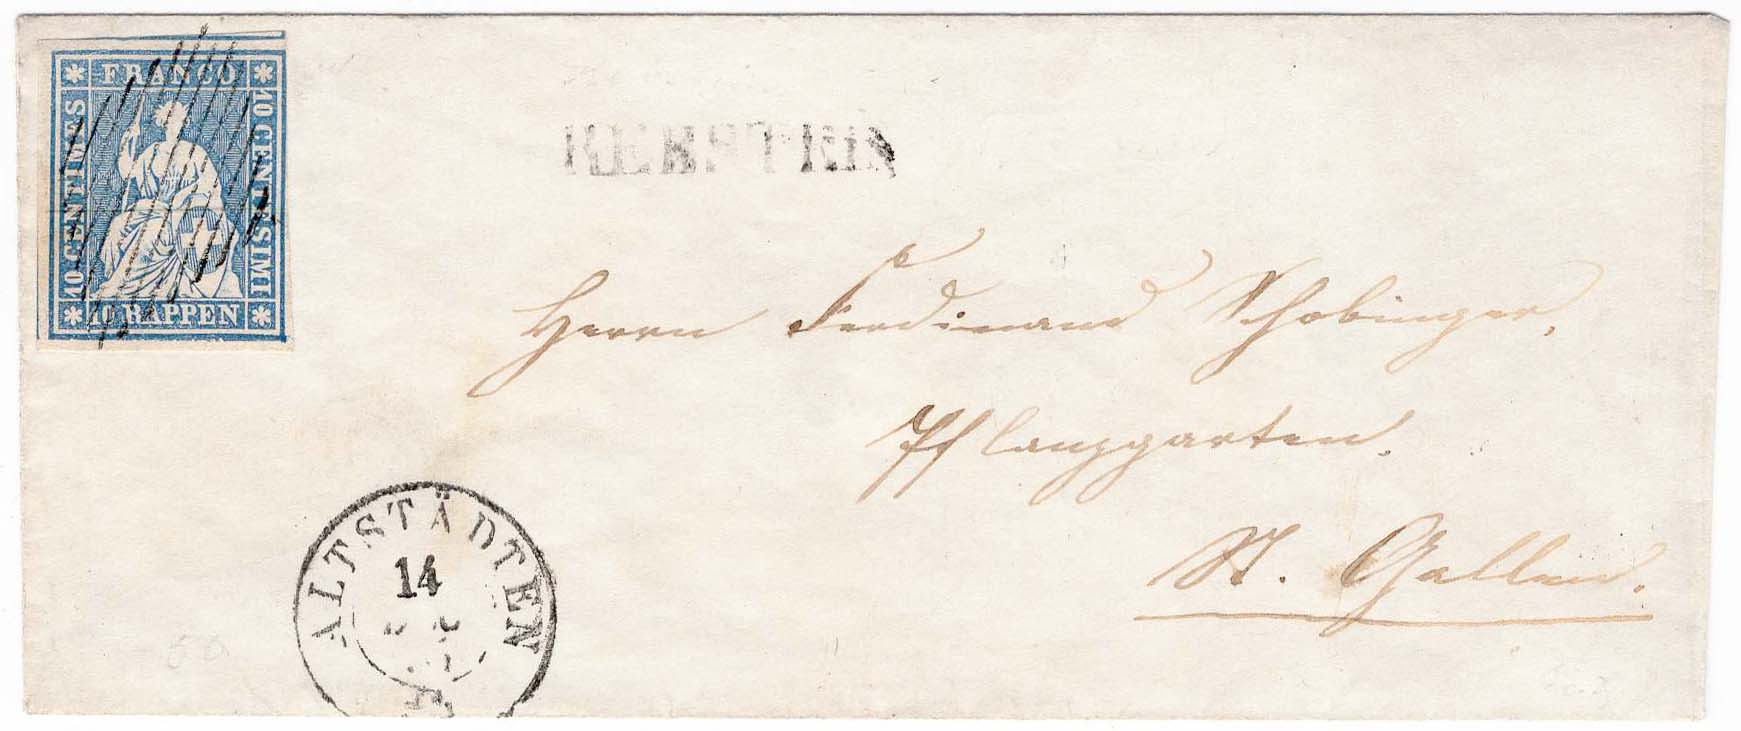 FRANCO
10 CENTIMES
10 CENTESIMI
10 RAPPEN
REBSTEIN
Herrn Ferdinand Schobinger,
Pflanzgarten.
St. Gallen.
ALTSTÄDTEN
14